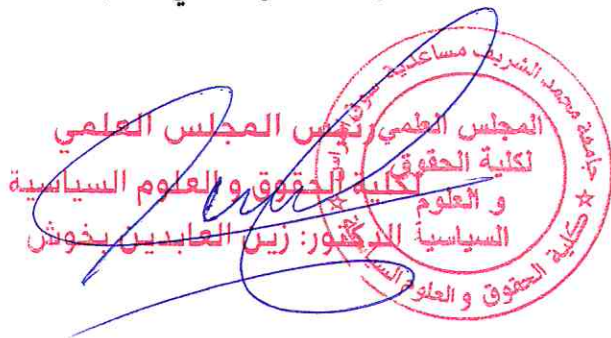 رئيس المجلس العلمي
لكلية الحقوق و العلوم السياسية
الدكتور: زين العابدين بخوش
جامعة محمد الشريف مساعدية سوق أهراس
كلية الحقوق و العلوم السياسية
المجلس العلمي
لكلية الحقوق
و العلوم
السياسية